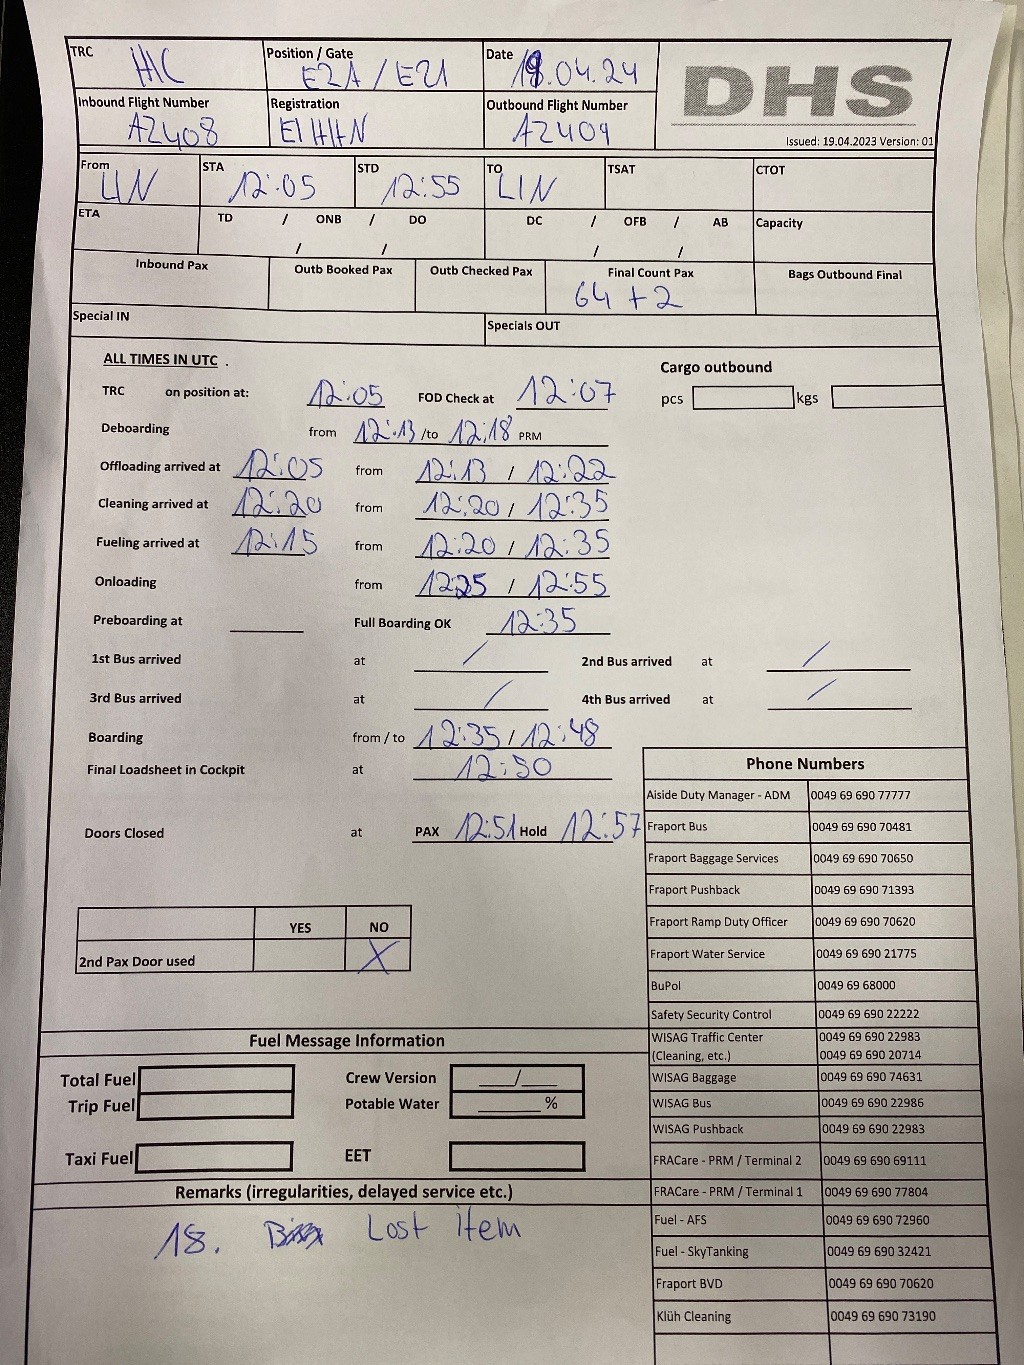 TRC Position / Gate Date DHS
E2A / E21 .04.24
Inbound Flight Number Registration Outbound Flight Number
AZ408 EIHHN AZ409
Issued: 19.04.2023 Version: 01
From STA STD TO TSAT CTOT
LIN 12:05 12:55 LIN
ETA TD / ONB / DO DC / OFB / AB Capacity
/ / / /
Inbound Pax Outb Booked Pax Outb Checked Pax Final Count Pax Bags Outbound Final
64 + 2
Special IN Specials OUT
ALL TIMES IN UTC . Cargo outbound
TRC on position at: 12:05 FOD Check at 12:07 pcs kgs
Deboarding from 12:13 /to 12:18 PRM
Offloading arrived at 12:05 from 12:13 / 12:22
Cleaning arrived at 12:20 from 12:20 / 12:35
Fueling arrived at 12:15 from 12:20 / 12:35
Onloading from 12:25 / 12:55
Preboarding at Full Boarding OK 12:35
1st Bus arrived at / 2nd Bus arrived at /
3rd Bus arrived at / 4th Bus arrived at /
Boarding from / to 12:35 / 12:48
Final Loadsheet in Cockpit at 12:50
Doors Closed at PAX 12:51 Hold 12:57
YES NO
2nd Pax Door used X
Fuel Message Information
Total Fuel Crew Version /
Trip Fuel Potable Water %
Taxi Fuel EET
Remarks (irregularities, delayed service etc.)
18. Lost item
Phone Numbers
Aiside Duty Manager - ADM 0049 69 690 77777
Fraport Bus 0049 69 690 70481
Fraport Baggage Services 0049 69 690 70650
Fraport Pushback 0049 69 690 71393
Fraport Ramp Duty Officer 0049 69 690 70620
Fraport Water Service 0049 69 690 21775
BuPol 0049 69 68000
Safety Security Control 0049 69 690 22222
WISAG Traffic Center 0049 69 690 22983
(Cleaning, etc.) 0049 69 690 20714
WISAG Baggage 0049 69 690 74631
WISAG Bus 0049 69 690 22986
WISAG Pushback 0049 69 690 22983
FRACare - PRM / Terminal 2 0049 69 690 69111
FRACare - PRM / Terminal 1 0049 69 690 77804
Fuel - AFS 0049 69 690 72960
Fuel - SkyTanking 0049 69 690 32421
Fraport BVD 0049 69 690 70620
Klüh Cleaning 0049 69 690 73190